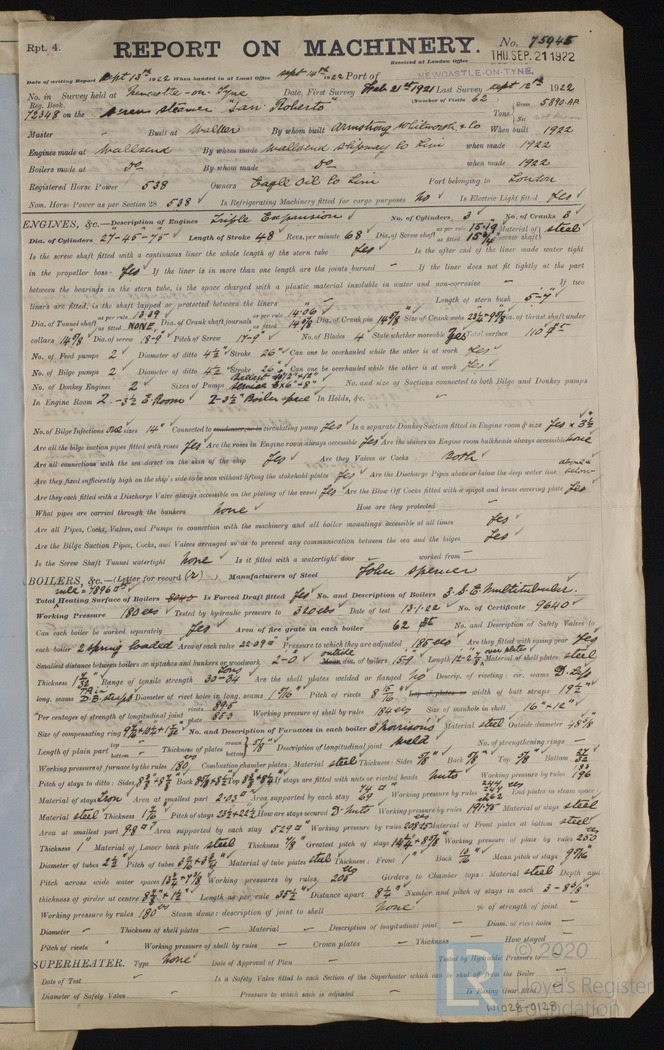 Rpt. 4.
REPORT ON MACHINERY.
No. 75945
Received at London Office THU. SEP. 21 1922
Date of writing Report Sept 13th 1922 When handed in at Local Office Sept 14th 1922 Port of NEWCASTLE-ON-TYNE.
No. in Survey held at Newcastle-on-Tyne Date, First Survey Feb 21st 1921 Last Survey Sept 12th 1922
Reg. Book. (Number of Visits 62)
72348 on the Screw Steamer "San Roberto" Tons Gross 5890.AP Net
Master Built at Walker By whom built Armstrong Whitworth & Co When built 1922
Engines made at Wallsend By whom made Wallsend Slipway Co Lim when made 1922
Boilers made at Do By whom made Do when made 1922
Registered Horse Power 538 Owners Eagle Oil Co Lim Port belonging to London
Nom. Horse Power as per Section 28 538 Is Refrigerating Machinery fitted for cargo purposes No Is Electric Light fitted Yes
ENGINES, &c.—Description of Engines Triple Expansion No. of Cylinders 3 No. of Cranks 3
Dia. of Cylinders 27"-45"-75" Length of Stroke 48 Revs. per minute 68 Dia. of Screw shaft as per rule 15.19 as fitted Material of screw shaft steel
Is the screw shaft fitted with a continuous liner the whole length of the stern tube Yes Is the after end of the liner made water tight
in the propeller boss Yes If the liner is in more than one length are the joints burned — If the liner does not fit tightly at the part
between the bearings in the stern tube, is the space charged with a plastic material insoluble in water and non-corrosive — If two
liners are fitted, is the shaft lapped or protected between the liners — Length of stern bush 5'-7"
Dia. of Tunnel shaft as per rule 13.39 as fitted NONE Dia. of Crank shaft journals as per rule 14.06 as fitted 14 7/8 Dia. of Crank pin 14 7/8 Size of Crank webs Dia. of thrust shaft under
collars 14 7/8 Dia. of screw 18'-9" Pitch of Screw 17'-9" No. of Blades 4 State whether moveable Yes Total surface 110
No. of Feed pumps 2 Diameter of ditto 4 1/2" Stroke 26" Can one be overhauled while the other is at work Yes
No. of Bilge pumps 2 Diameter of ditto 4 1/2" Stroke 26" Can one be overhauled while the other is at work Yes
No. of Donkey Engines 2 Sizes of Pumps No. and size of Suctions connected to both Bilge and Donkey pumps
In Engine Room 2-3 1/2" E Room 2-3 1/2" Boiler space In Holds, &c.
No. of Bilge Injections one sizes 14" Connected to condenser, or to circulating pump Yes Is a separate Donkey Suction fitted in Engine room & size Yes × 3 1/2"
Are all the bilge suction pipes fitted with roses Yes Are the roses in Engine room always accessible Yes Are the sluices on Engine room bulkheads always accessible None
Are all connections with the sea direct on the skin of the ship Yes Are they Valves or Cocks Both
Are they fixed sufficiently high on the ship's side to be seen without lifting the stokehold plates Yes Are the Discharge Pipes above or below the deep water line above & below
Are they each fitted with a Discharge Valve always accessible on the plating of the vessel Yes Are the Blow Off Cocks fitted with a spigot and brass covering plate Yes
What pipes are carried through the bunkers None How are they protected —
Are all Pipes, Cocks, Valves, and Pumps in connection with the machinery and all boiler mountings accessible at all times Yes
Are the Bilge Suction Pipes, Cocks, and Valves arranged so as to prevent any communication between the sea and the bilges Yes
Is the Screw Shaft Tunnel watertight None Is it fitted with a watertight door — worked from —
BOILERS, &c.—(Letter for record (r)) Manufacturers of Steel John Spencer
Total Heating Surface of Boilers Is Forced Draft fitted Yes No. and Description of Boilers 3 S.E. Multitubular
Working Pressure 180 lbs Tested by hydraulic pressure to 320 lbs Date of test 13.1.22 No. of Certificate 9640
Can each boiler be worked separately Yes Area of fire grate in each boiler 62 No. and Description of Safety Valves to
each boiler 2 Spring Loaded Area of each valve 22.09 Pressure to which they are adjusted 185 lbs Are they fitted with easing gear Yes
Smallest distance between boilers or uptakes and bunkers or woodwork 2'-0 outside dia. of boilers 15'-9 Length Material of shell plates steel
Thickness Range of tensile strength 30-34 tons Are the shell plates welded or flanged No Descrip. of riveting: cir. seams D. Lap
long. seams D.B. Straps Diameter of rivet holes in long. seams 1 9/16" Pitch of rivets width of butt straps
Per centages of strength of longitudinal joint rivets 89.5 plate 85.3 Working pressure of shell by rules 184 lbs Size of manhole in shell 16" × 12"
Size of compensating ring No. and Description of Furnaces in each boiler 3 Morrison's Material steel Outside diameter
Length of plain part top bottom Thickness of plates crown bottom 5/8" Description of longitudinal joint Weld No. of strengthening rings —
Working pressure of furnace by the rules 180 lbs Combustion chamber plates: Material steel Thickness: Sides 5/8" Back 5/8" Top 5/8" Bottom
Pitch of stays to ditto: Sides Back Top If stays are fitted with nuts or riveted heads Nuts Working pressure by rules
Material of stays Iron Area at smallest part 2.03 Area supported by each stay Working pressure by rules End plates in steam space
Material steel Thickness How are stays secured D. Nuts Working pressure by rules Material of stays steel
Area at smallest part 9.8 Area supported by each stay 529 Working pressure by rules Material of Front plates at bottom steel
Thickness 1" Material of Lower back plate steel Thickness 7/8" Greatest pitch of stays Working pressure of plate by rules
Diameter of tubes 2 1/2" Pitch of tubes Material of tube plates steel Thickness: Front 1" Back Mean pitch of stays
Pitch across wide water spaces Working pressures by rules, 205 lbs Girders to Chamber tops: Material steel Depth and
thickness of girder at centre Length as per rule 35 1/2" Distance apart Number and pitch of stays in each
Working pressure by rules 180 lbs Steam dome: description of joint to shell None % of strength of joint —
Diameter — Thickness of shell plates — Material — Description of longitudinal joint — Diam. of rivet holes —
Pitch of rivets Working pressure of shell by rules — Crown plates — Thickness — How stayed —
SUPERHEATER. Type None Date of Approval of Plan — Tested by Hydraulic Pressure to
Date of Test — Is a Safety Valve fitted to each Section of the Superheater which can be shut off from the Boiler —
Diameter of Safety Valve — Pressure to which each is adjusted — Is Easing Gear fitted
© 2020
Lloyd's Register
Foundation
W1028-0128